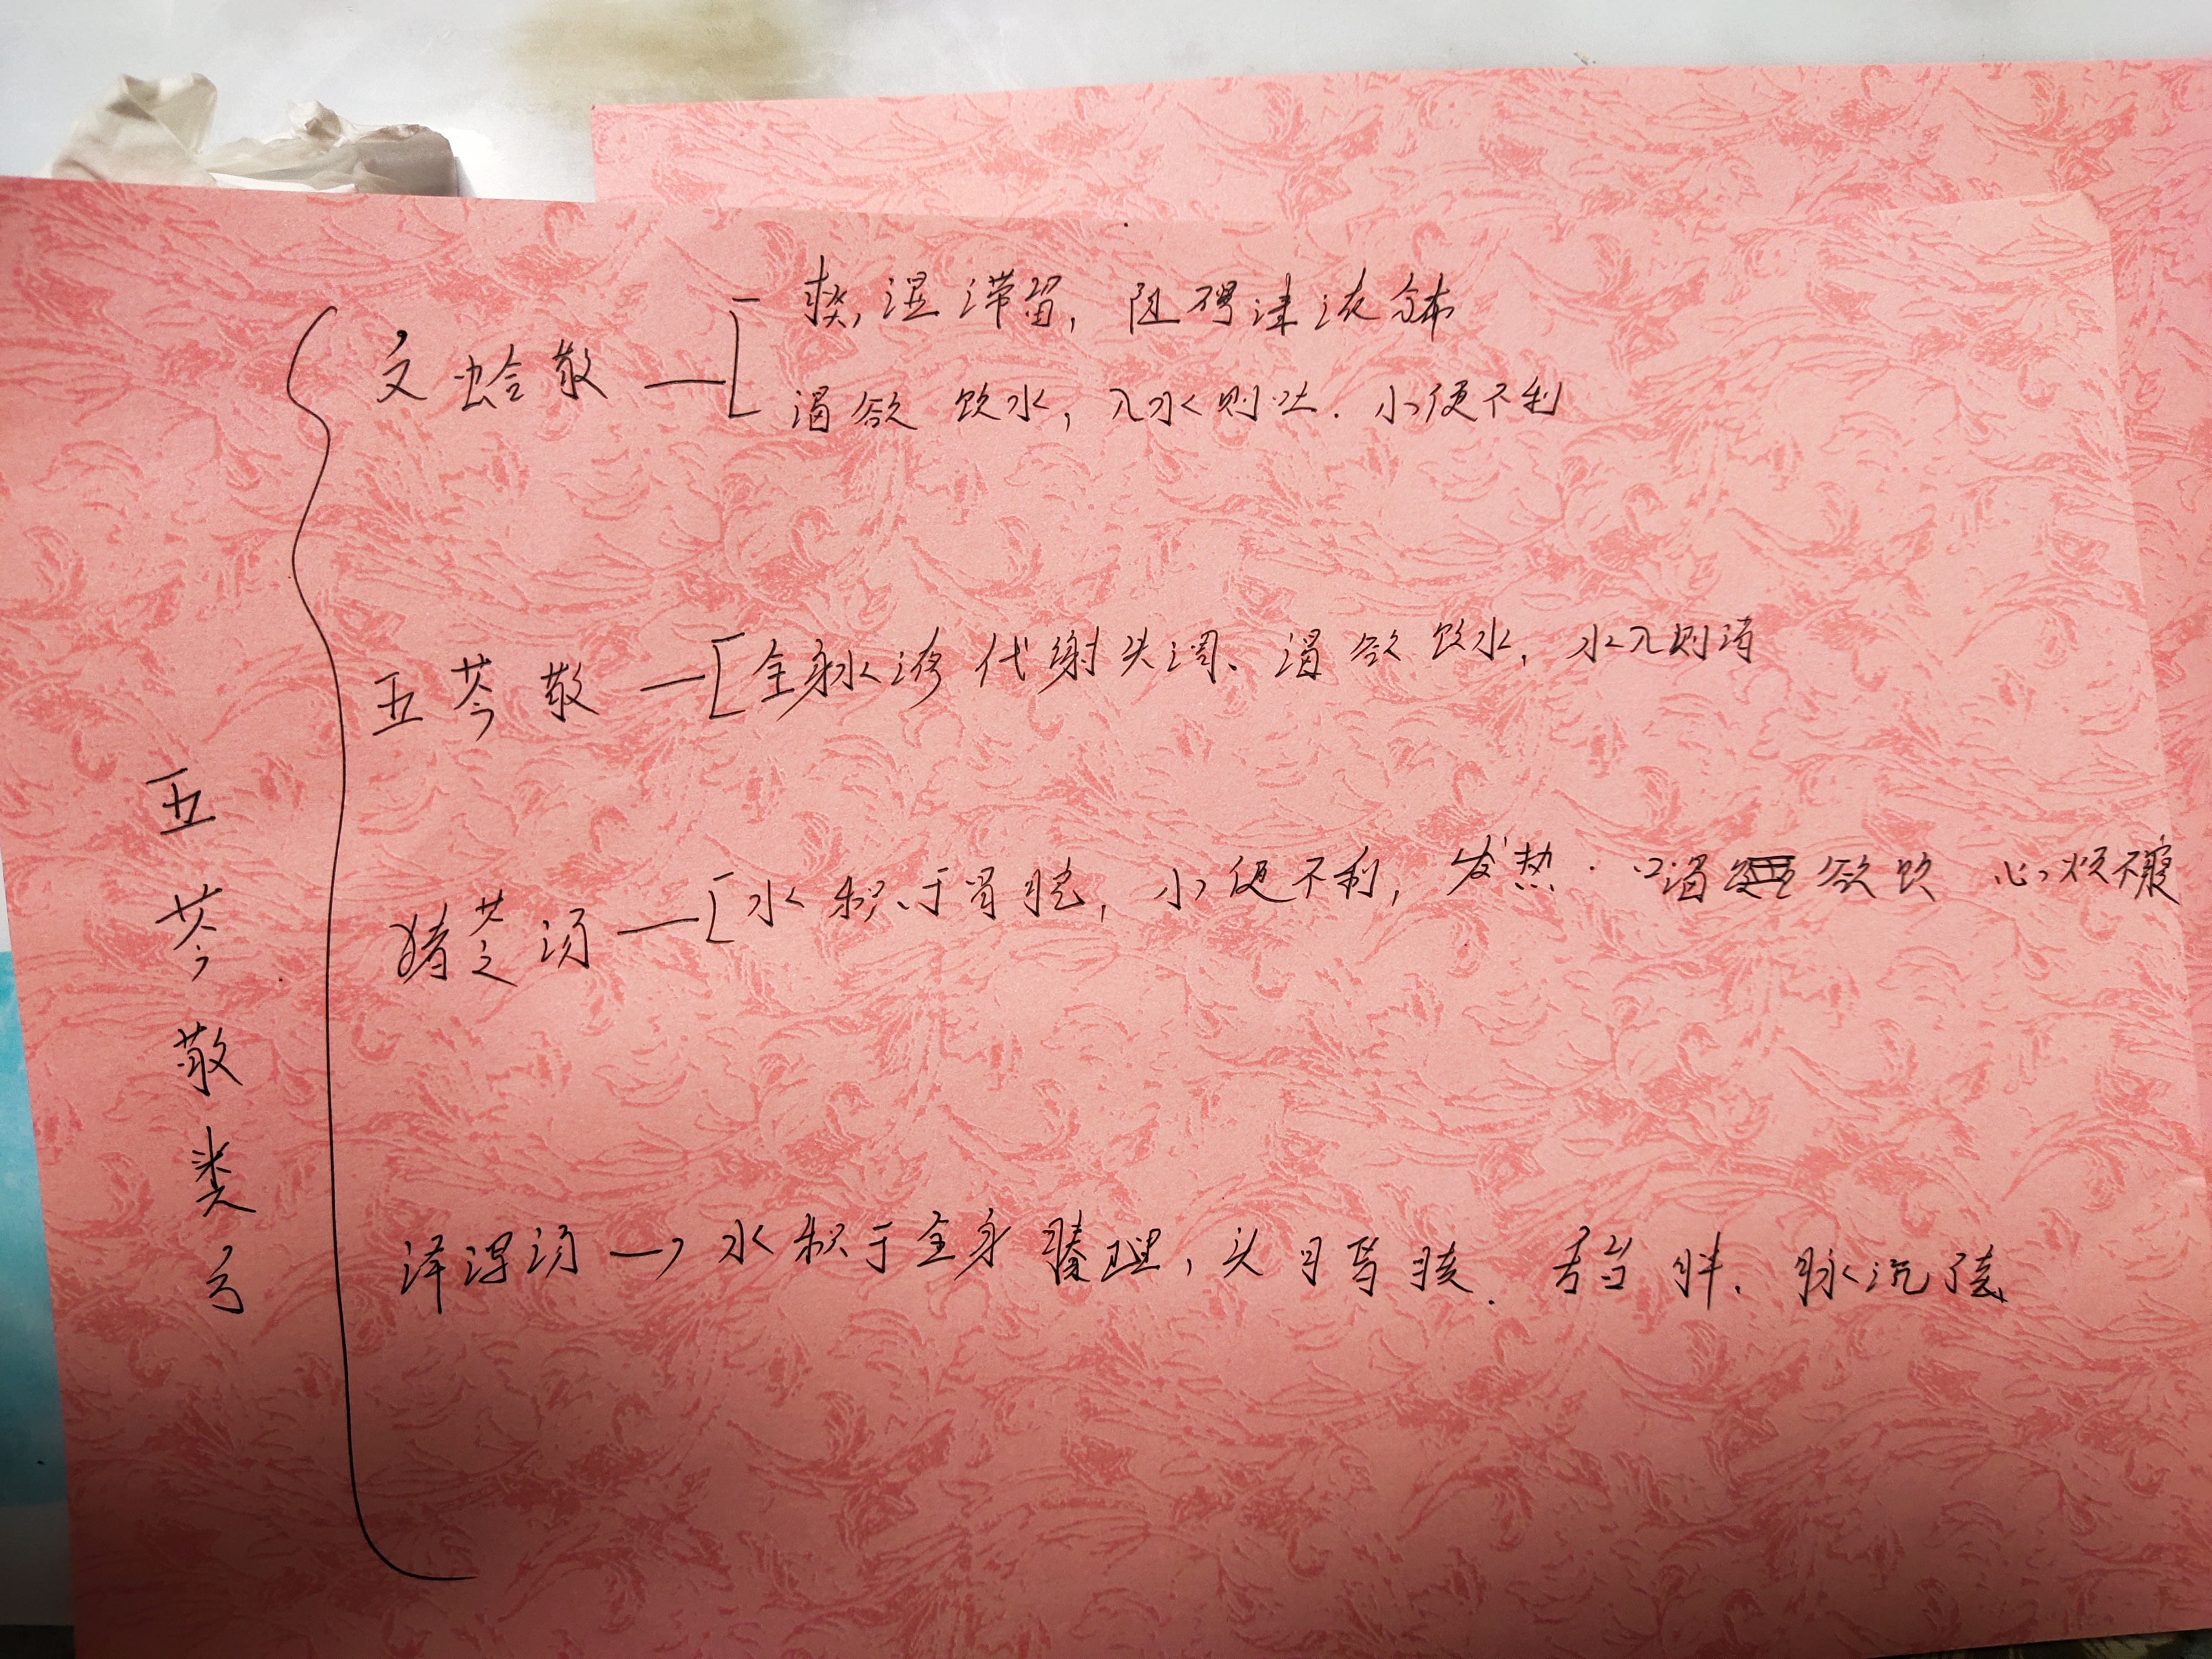 五苓散类方
文蛤散
热,湿滞留,阻碍津液分布
渴欲饮水,入水则吐.小便不利
五苓散 全身水液代谢失调、渴欲饮水,水入则消
猪苓汤 水积于胃腕,小便不利,发热.口渴欲饮 心烦不寐
泽泻汤→水积于全身腠理,头目昏眩.舌胖.脉沉弦